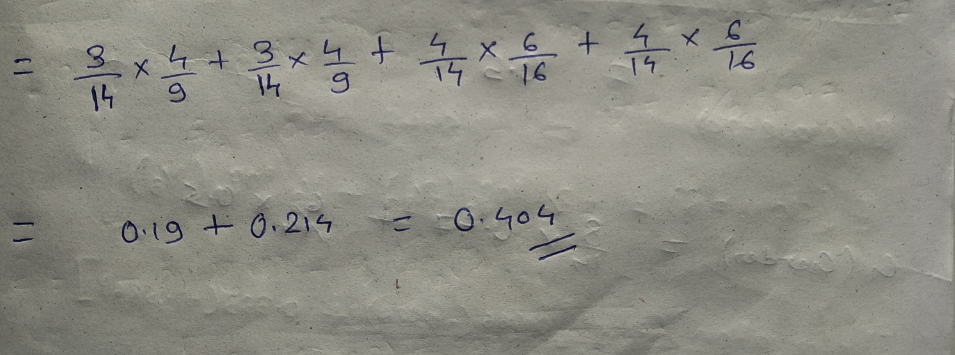 = 3/14 × 4/9 + 3/14 × 4/9 + 4/14 × 6/16 + 4/14 × 6/16
= 0.19 + 0.214 = 0.404